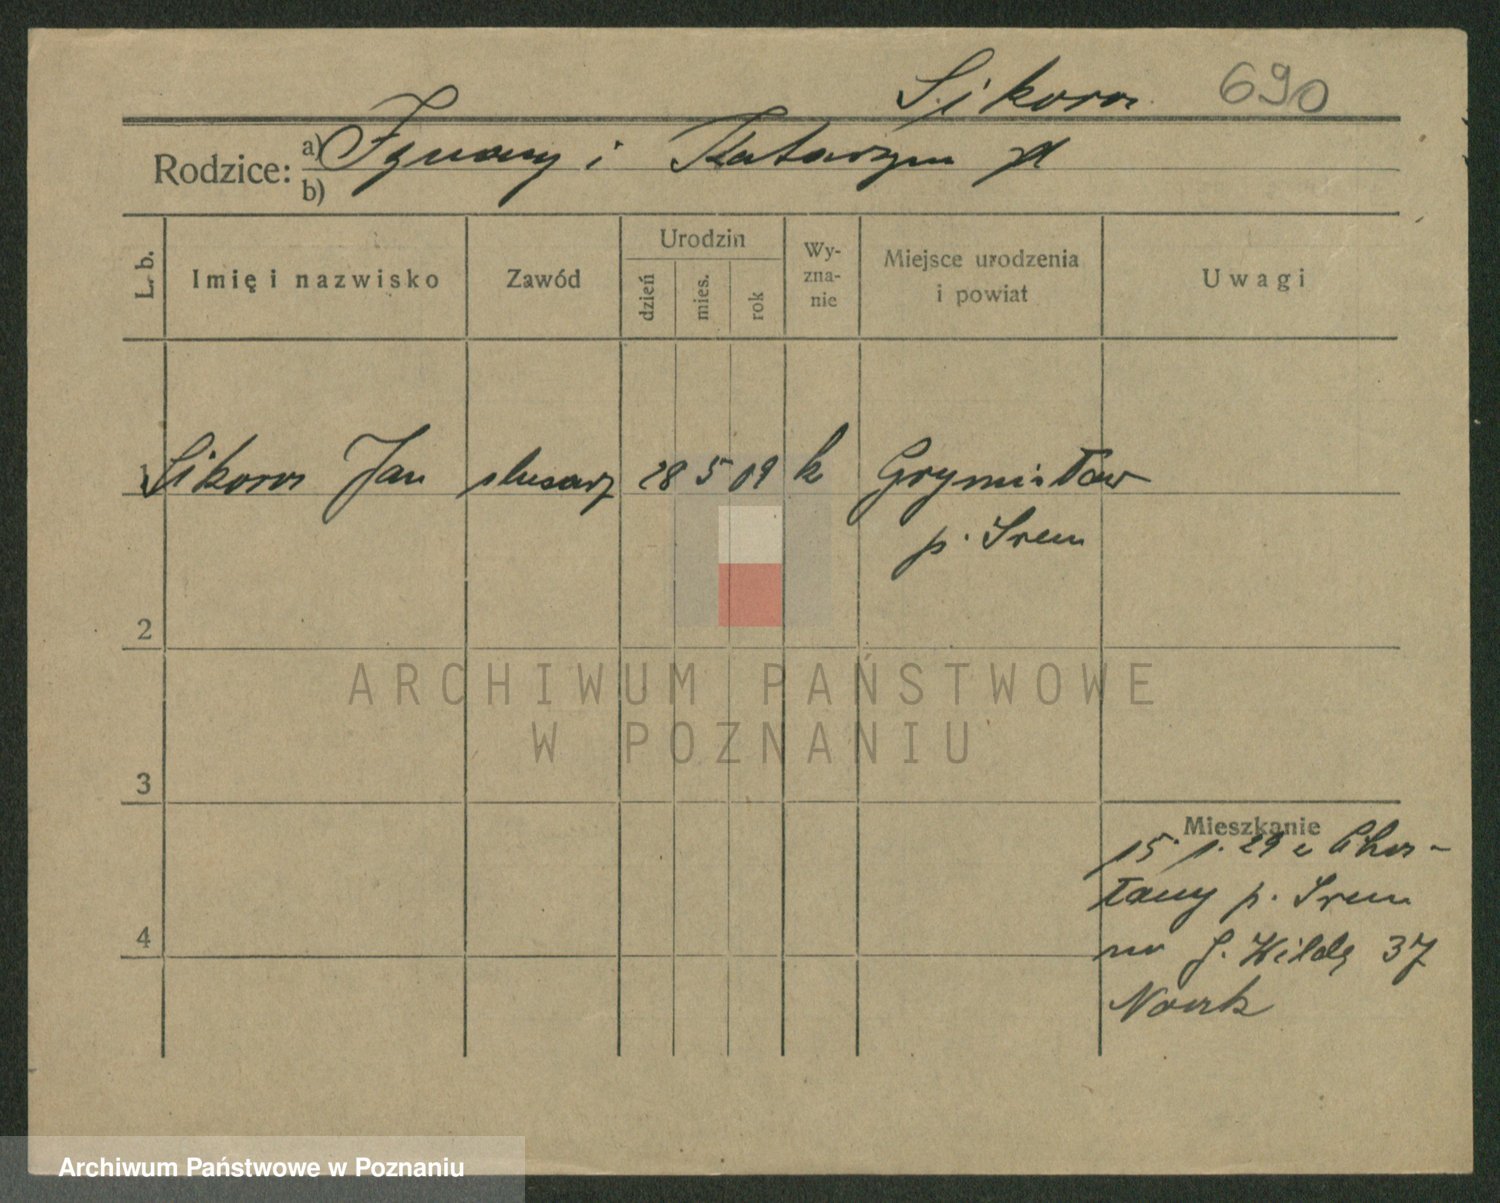 Sikora 690
Rodzice: a) Ignacy i Katarzyna
b)
L. b. Imię i nazwisko Zawód Urodzin dzień mies. rok Wy-zna-nie Miejsce urodzenia i powiat Uwagi
1 Sikora Jan slusarz 28 5 09 k Grzymisław
p. Srem
2
ARCHIWUM PAŃSTWOWE
W POZNANIU
3
Mieszkanie
15. 1. 29 z
p. Srem
na G. Wildę 37
4
Archiwum Państwowe w Poznaniu